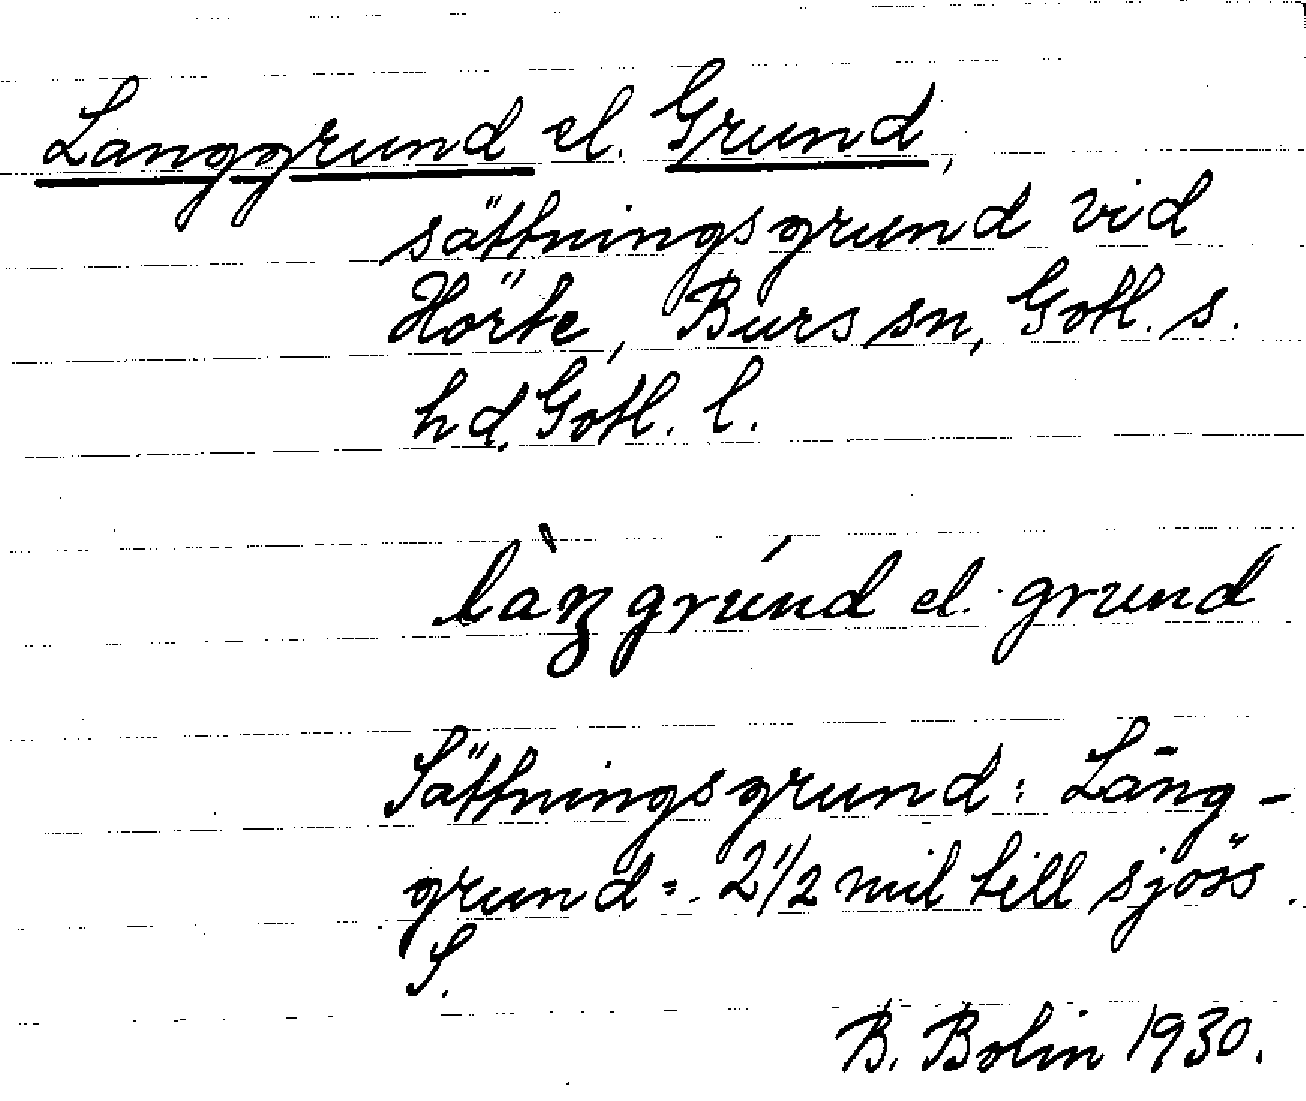 Langgrund el. Grund,
sättningsgrund vid
Hörte, Burs sn, Gotl. s.
hd. Gotl. l.
làŋgrúnd el. grund
Sättningsgrund: Lāng-
grund = 2 1/2 mil till sjöss.
S.
B. Bolin 1930.